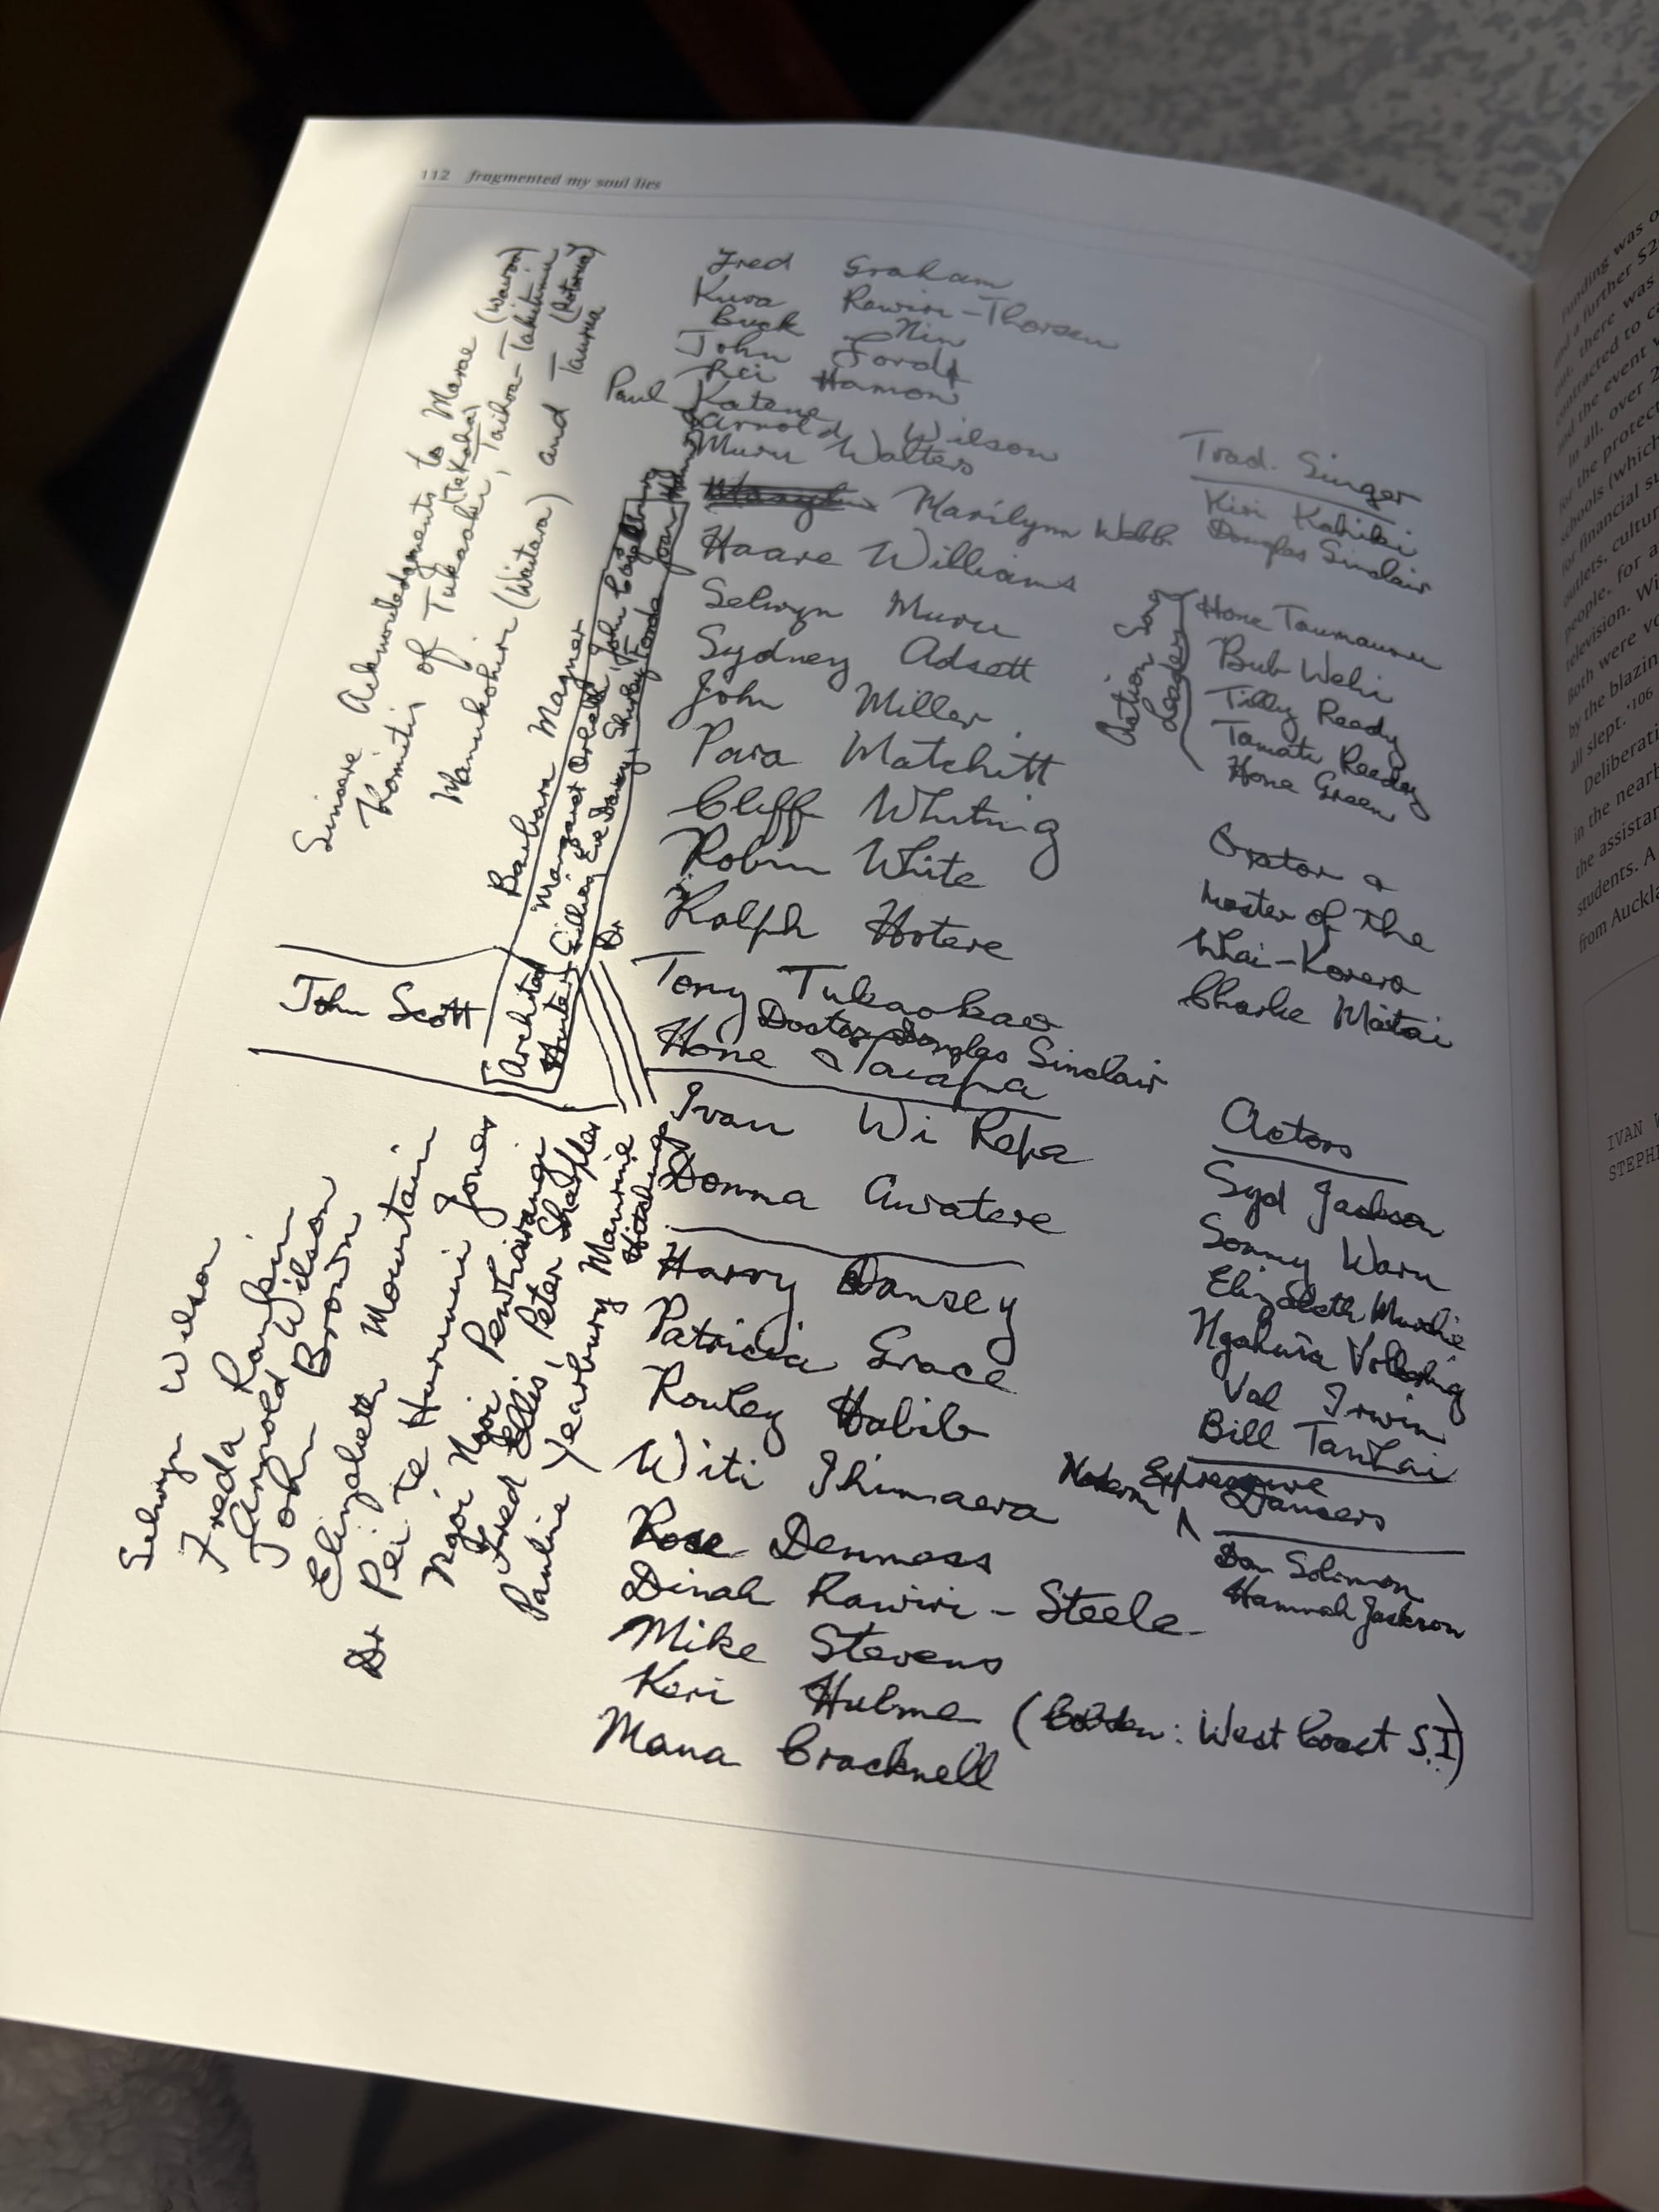 112 fragmented my soul lies
Fred Graham
Kura Rawiri-Thorsen
Buck Nin
John Ford
Rei Hamon
Paul Katene
Arnold Wilson
Muru Walters
Marilynn Webb
Haare Williams
Selwyn Muru
Sydney Adsett
John Miller
Para Matchitt
Cliff Whiting
Robin White
Ralph Hotere
Tony Tukaokao
Doctor Douglas Sinclair
Hone Taiapa
Ivan Wi Repa
Donna Awatere
Harry Dansey
Patricia Grace
Rowley Habib
Witi Ihimaera
Rose Denness
Dinah Rawiri-Steele
Mike Stevens
Keri Hulme ( : West Coast S.I)
Mana Cracknell
Trad. Singer
Kiri Kahiki
Douglas Sinclair
Action Song
Leaders
Hone Taumaunu
Bub Wehi
Tilly Reedy
Tamati Reedy
Hone Green
Orator &
Master of the
Whai-Korero
Charlie Matai
Actors
Syd Jackson
Sonny Waru
Elizabeth Murchie
Ngahuia Volkering
Val Irwin
Bill Tawhai
Modern Expressive
Dancers
Dan Solomon
Hannah Jackson
Sincere Acknowledgements to Marae (Wairoa)
Komitis of Tukaaki (Te Kaha), Taihoa-Takitimu
Manukohiri (Waitara) and Taurua (Rotorua)
Barbara Magner
Margaret Orbell, John
Gillian, Eve Davy, Shirley
Dr
John Scott
[Architect]
Selwyn Wilson
Freda Rankin
Harold Wilson
John Brown
Elizabeth Mountain
Dr Pei te Hurunui Jones
Ngoi Ngoi Pewhairangi
Fred Ellis, Peter Sharples
Pauline Yearbury Maurine
Hitchings